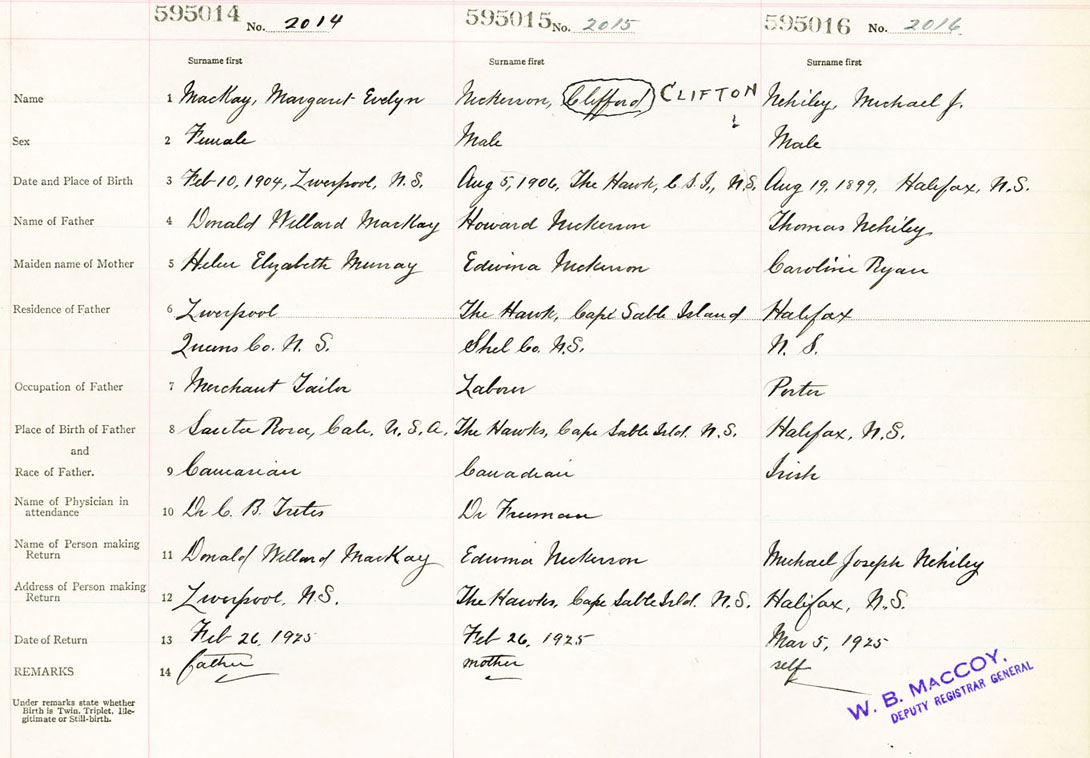 595014 No. 2014 595015 No. 2015 595016 No. 2016
Surname first Surname first Surname first
Name 1 MacKay, Margaret Evelyn Nickerson, Clifford CLIFTON Nehiley, Michael J.
Sex 2 Female Male Male
Date and Place of Birth 3 Feb 10, 1904, Liverpool, N.S. Aug 5, 1906, The Hawk, C.S.I., N.S. Aug 19, 1899, Halifax, N.S.
Name of Father 4 Donald Willard MacKay Howard Nickerson Thomas Nehiley
Maiden name of Mother 5 Helen Elizabeth Murray Edwina Nickerson Caroline Ryan
Residence of Father 6 Liverpool The Hawk, Cape Sable Island Halifax
Queens Co. N.S. Shel Co. N.S. N.S.
Occupation of Father 7 Merchant Tailor Labour Porter
Place of Birth of Father 8 Santa Rosa, Cal., U.S.A. The Hawks, Cape Sable Isld. N.S. Halifax, N.S.
and
Race of Father. 9 Caucasian Canadian Irish
Name of Physician in
attendance 10 Dr C. B. Dr Freeman
Name of Person making
Return 11 Donald Willard MacKay Edwina Nickerson Michael Joseph Nehiley
Address of Person making
Return 12 Liverpool, N.S. The Hawks, Cape Sable Isld. N.S. Halifax, N.S.
Date of Return 13 Feb 26, 1925 Feb 26, 1925 Mar 5, 1925
REMARKS 14 father mother self
Under remarks state whether
Birth is Twin, Triplet, Ille-
gitimate or Still-birth.
W. B. MACCOY,
DEPUTY REGISTRAR GENERAL